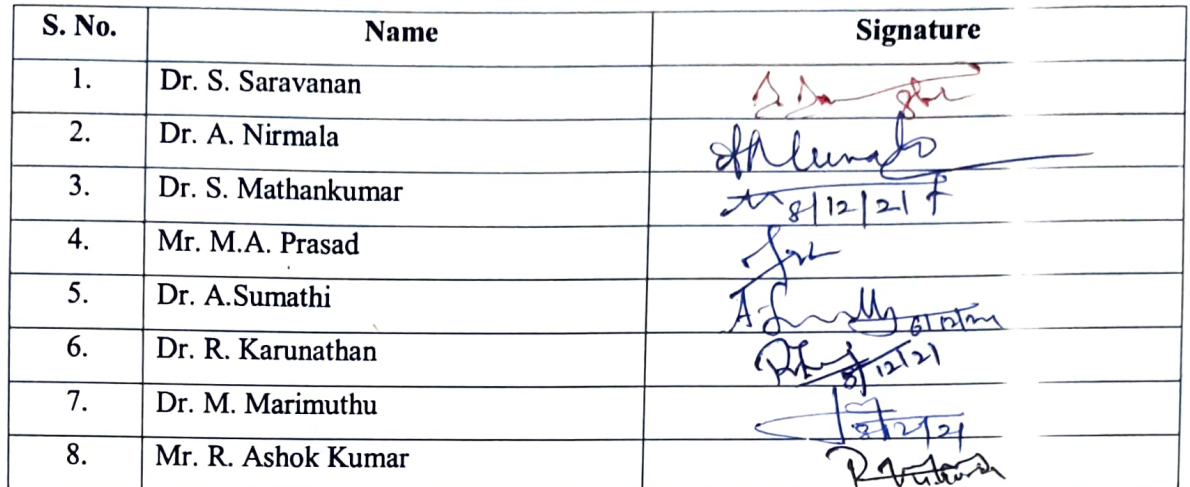 S. No. Name Signature
1. Dr. S. Saravanan
2. Dr. A. Nirmala
3. Dr. S. Mathankumar 8/12/21
4. Mr. M.A. Prasad
5. Dr. A.Sumathi
6. Dr. R. Karunathan 8/12/21
7. Dr. M. Marimuthu 8/12/21
8. Mr. R. Ashok Kumar